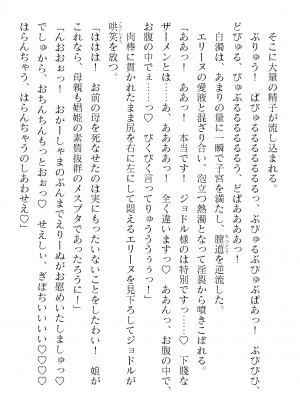 そこに大量の精子が流し込まれる。
ぶりゅう！　ばびゅるるるるるるっ、ぶびゅぶびゅばあっ！　ぶびびひ、
どびゅる、びゅぶるるるるるるぅ、どばああああっ！
白濁は、あまりの量に一瞬で子宮を満たし、膣道を逆流した。
エリーヌの愛液と混ざり合い、泡立つ熱濁となって淫裂から噴きこぼれる。
「ああっ！　ああっ！　本当です！　ジョドル様のは特別ですっ……♡　下賤な
ザーメンとは……あ、ああああっ！　全く違いますっ♡　ああんっ、お腹の中で、
お腹の中でぇ……っ♡　びくびく言ってりゅううぅぅっ！」
肉棒に貫かれたまま尻を右に左にして悶えるエリーヌを見下ろしてジョドルが
哄笑を放つ。
「ははは！　お前の母を死なせたのは実にもったいないことをしたわい！　娘が
これなら、母親も娼姫の素質抜群のメスブタであったろうに！」
「んおおぉっ！　おかーしゃまのぶんまでえりーぬがお慰めいたしましゅっ♡
でしゅから、おちんちんもっとおぉっ♡　せえしぃ、ぎぼぢいいいい♡♡♡♡
はらんちゃう、はらんちゃうのしあわせえ♡」